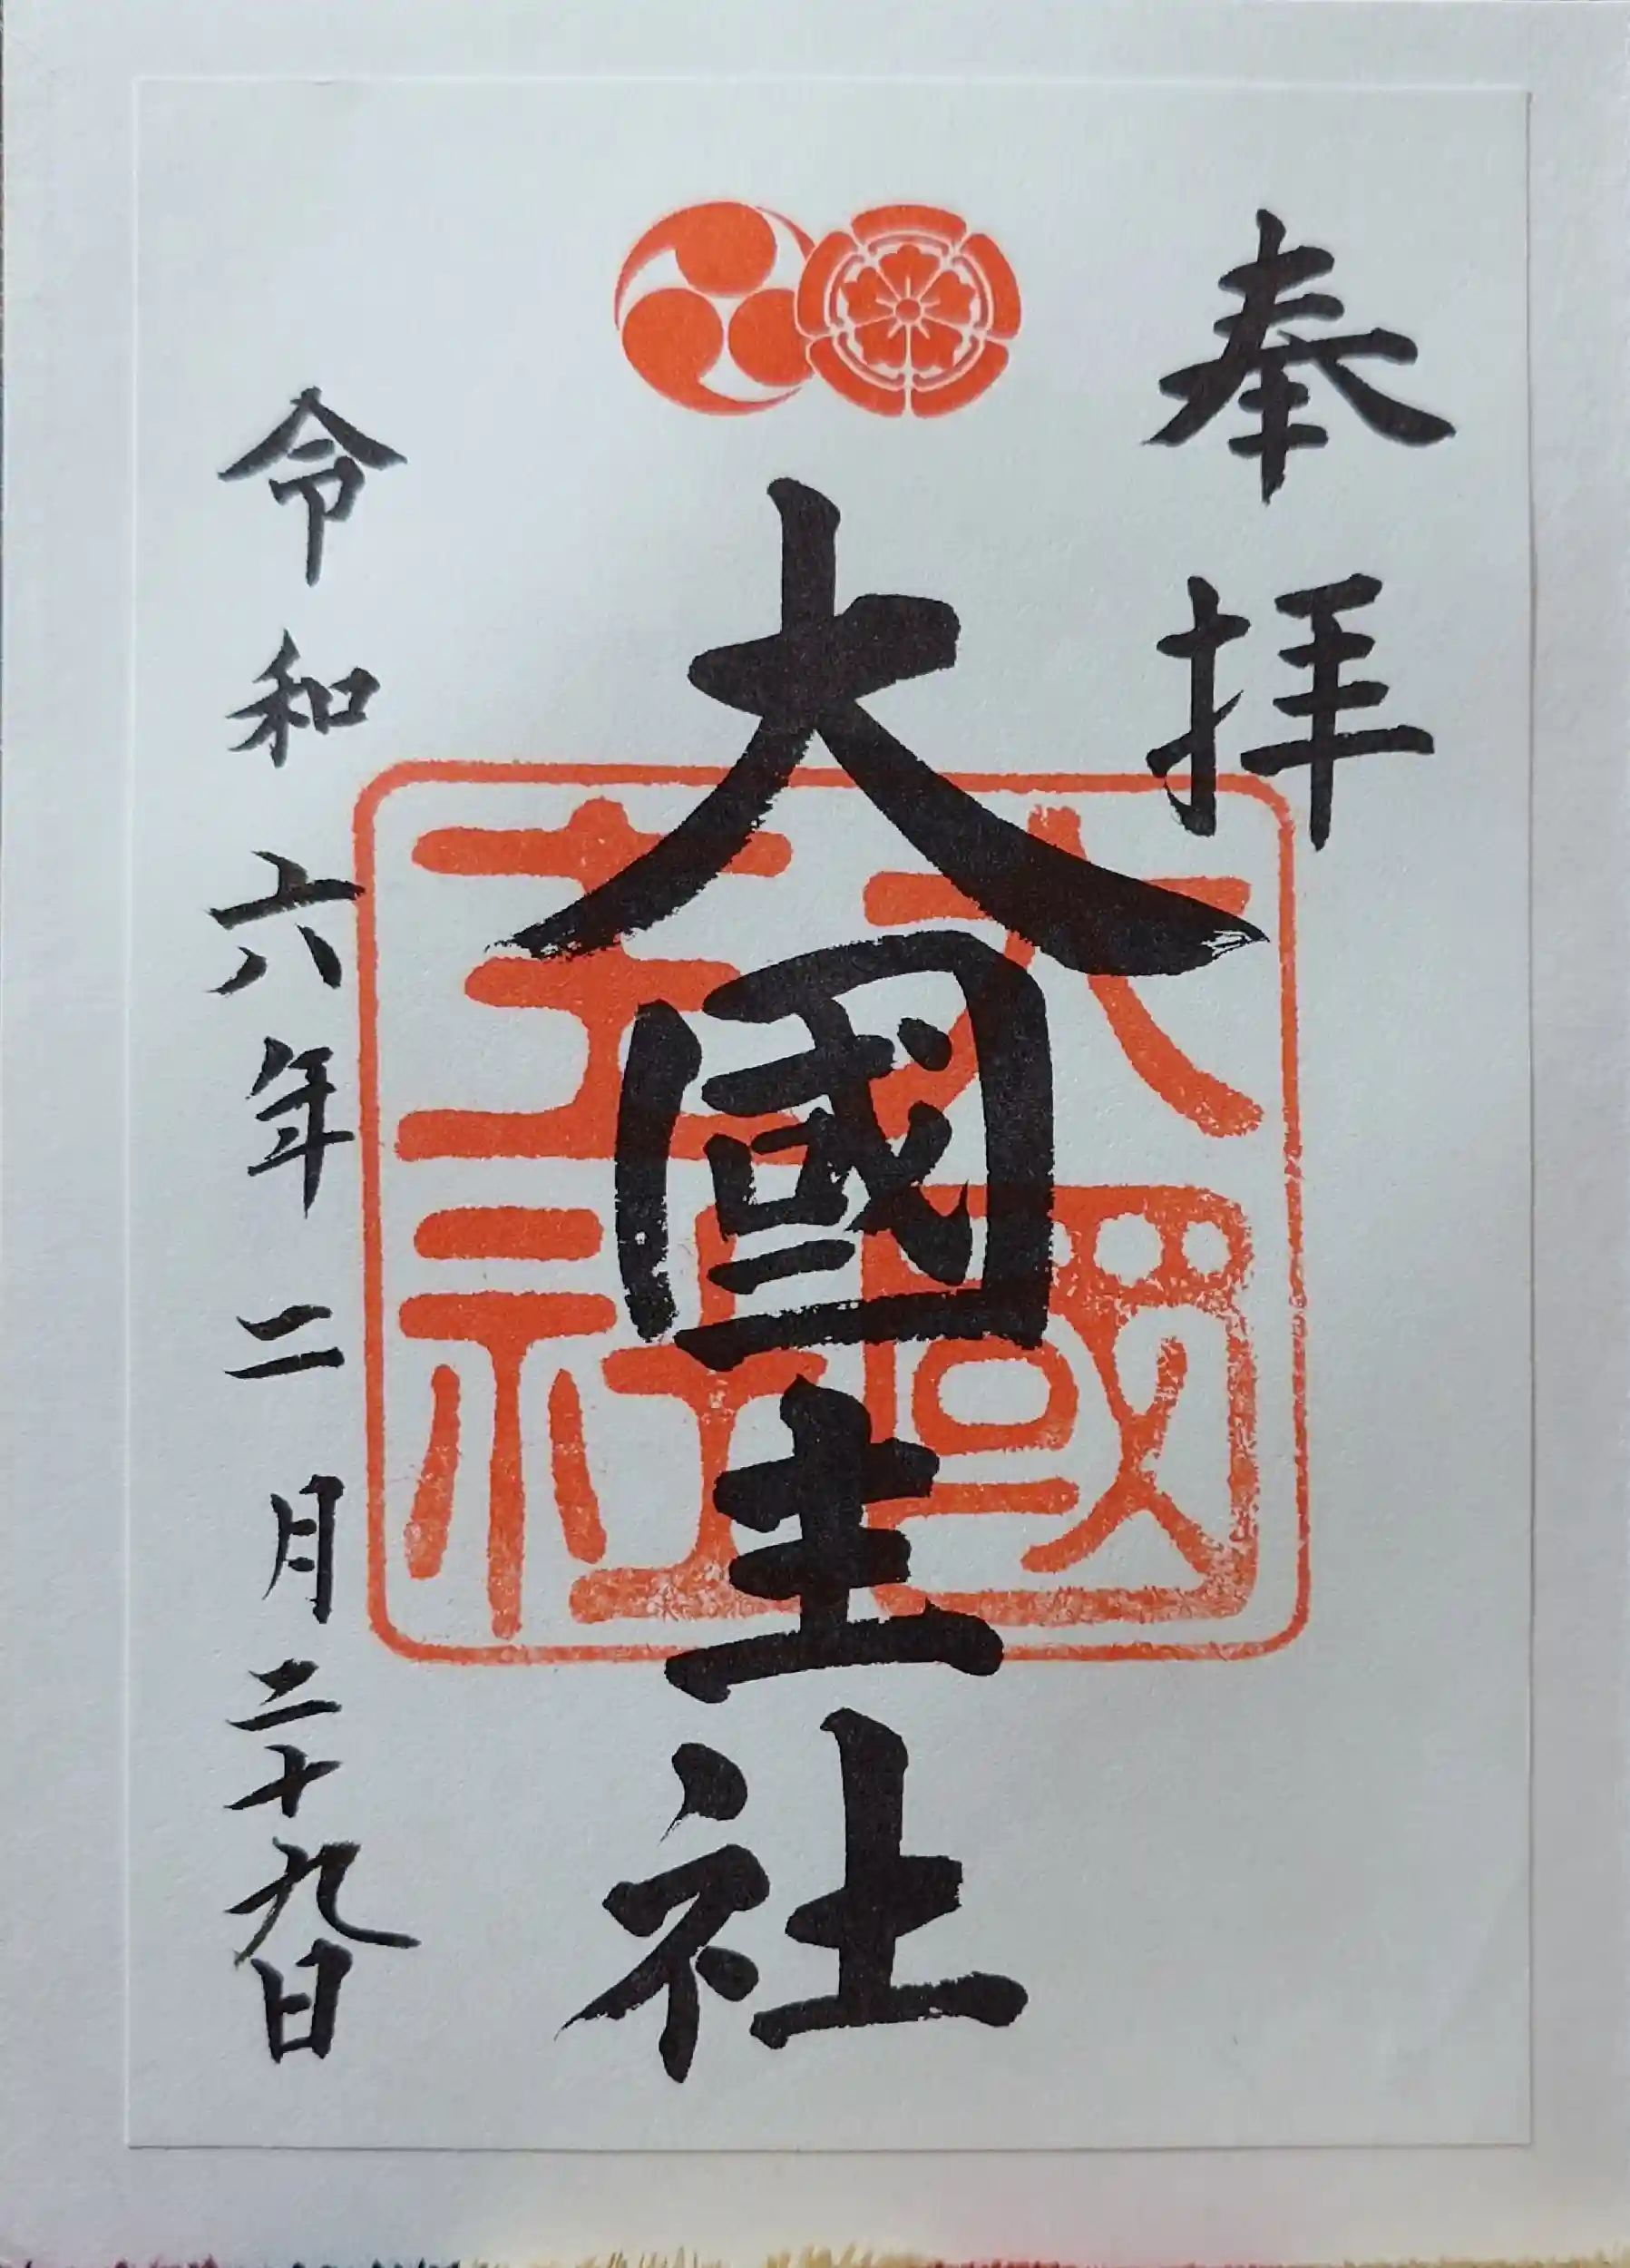 奉拝
大國主社
大國主社
令和六年二月二十九日